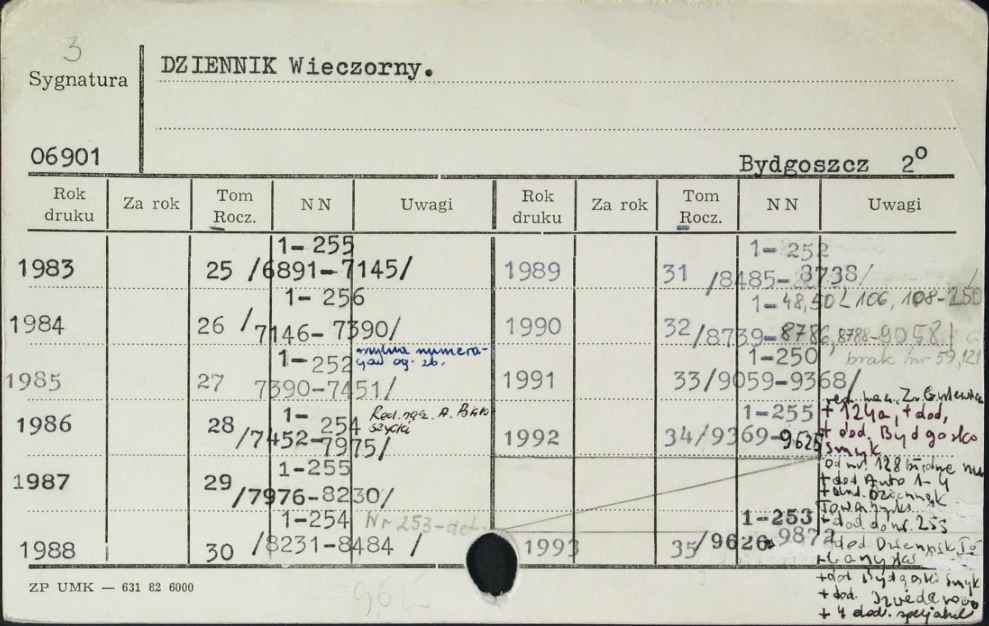 3
Sygnatura
DZIENNIK Wieczorny.
06901
Bydgoszcz 2°
Rok druku Za rok Tom Rocz. NN Uwagi Rok druku Za rok Tom Rocz. NN Uwagi
1983 25 1-255 /6891-7145/
1984 26 1-256 /7146-7390/
1985 27 1-252 7390-7451/ mylna numera-
cja og. zb.
1986 28 1-254 /7452-7975/ Red. nacz. A.
1987 29 1-255 /7976-8230/
1988 30 1-254 /8231-8484 / Nr 253-
1989 31 1-252 /8485-8738/
1990 32 1-48,50-106, 108-250 /8739-8786,8788-9058/
1991 33 1-250 /9059-9368/ brak nr 59,121
1992 34 1-255 /9369-9625 red. nacz. Z.
+ 124a, + dod,
+ dod. Bydgosko
Smyk
od nr. 128 błędne nu
+ dod Auto 1-4
+ dod. Dziennik
1993 35 1-253 /9626-9872 + dod do nr. 253
+ dod
+ dod Bydgoski Smyk
+ dod.
+ 4 dod. specjalne
ZP UMK — 631 82 6000